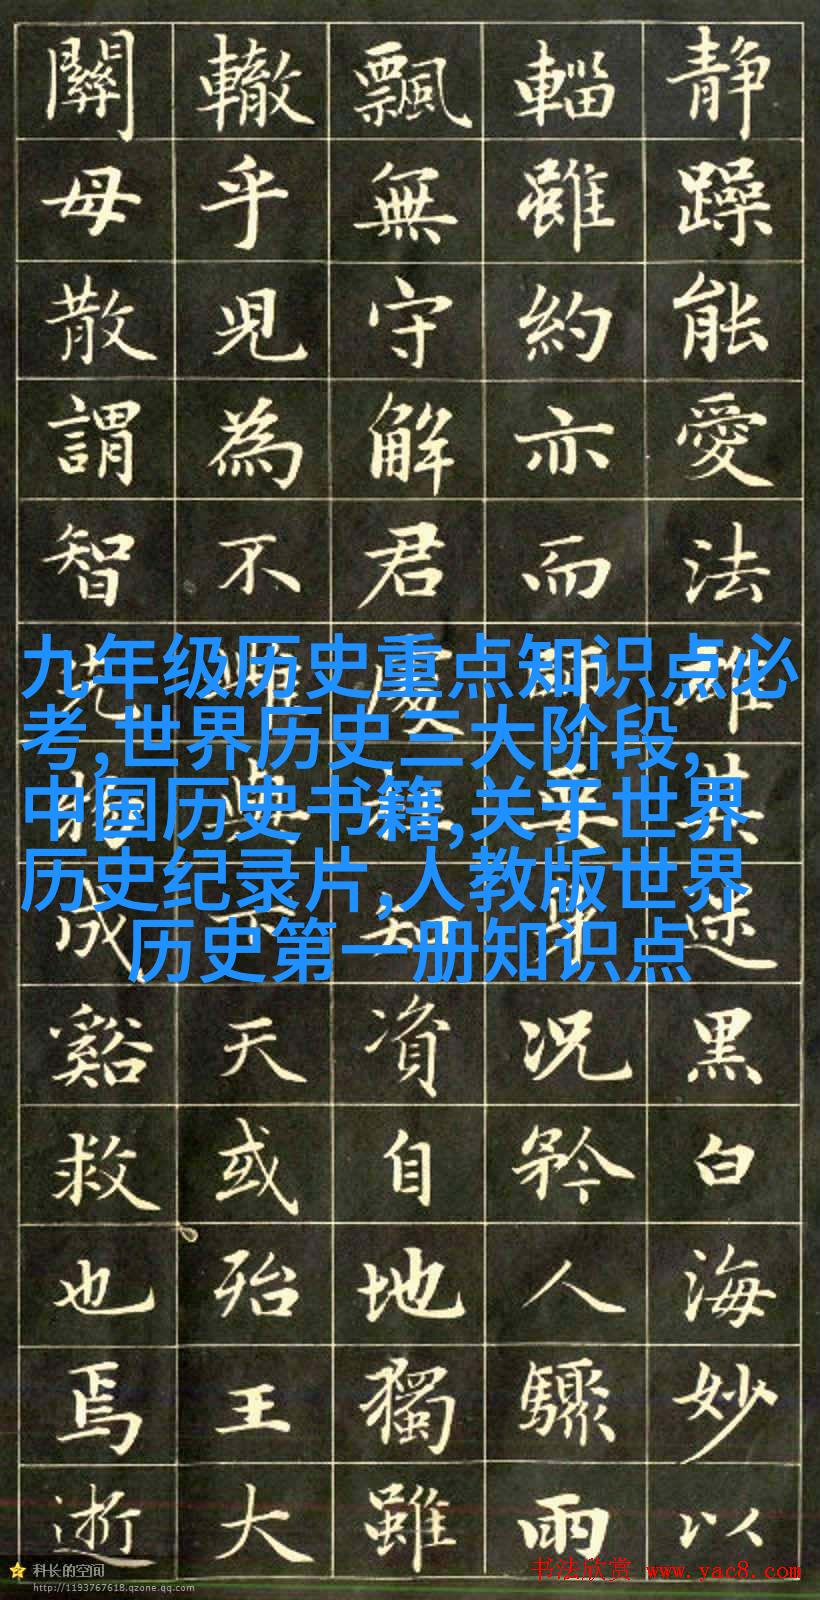 静躁能愛法雖其黑白海妙以
輜雖約亦而師况矜人驟雨
飄無守解君處知資自地獨雖
轍乎児為不天或殆王大
關毋散謂智先物成谿救也焉逝
九年级历史重点知识点必
考,世界历史三大阶段,
中国历史书籍,关于世界
历史纪录片,人教版世界
历史第一册知识点
科长的空间
http://1193767618.qzone.qq.com
书法欣赏 www.yac8.com